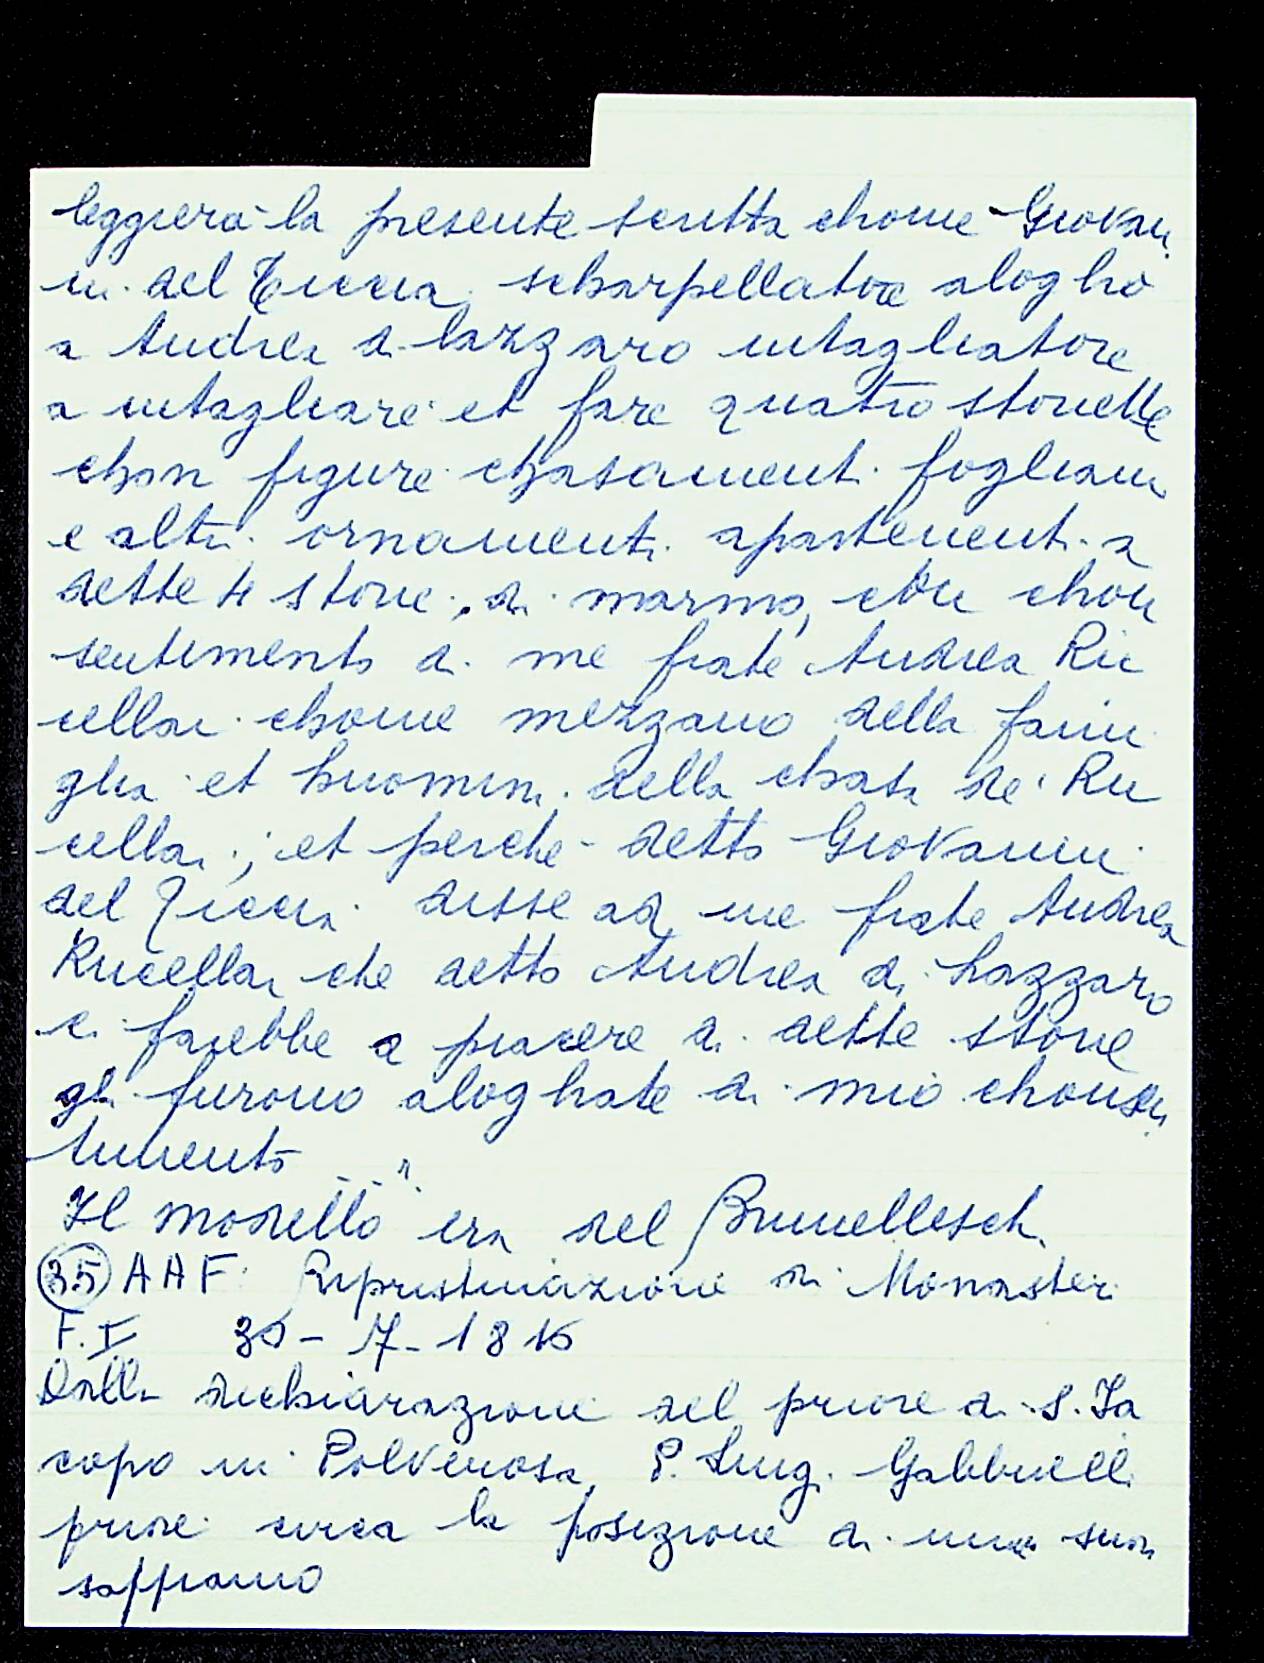 leggierà la presente scritta chome Giovan
ni del Ticcia scharpellatore alogho
a Andrea di Lazzaro intagliatore
a intagliare et fare quatro storiette
chon figure chasamenti fogliami
e altri ornamenti apartenenti a
dette 4 storie di marmo, chon
sentimento di me frate Andrea Ru
cellai chome mezzano della fami
glia et huomini della chasa de' Ru
cellai; et perchè detto Giovanni
del Ticcia disse ad me frate Andrea
Rucellai che detto Andrea di Lazzaro
ci farebbe a piacere di dette storie
gli furono aloghate di mio chonsen
timento ..."
Il modello era del Brunelleschi.
(35) AAF Ripristinazione di Monasteri
F. I 30-7-1816
Dalla dichiarazione del priore di S. Ja
copo in Polverosa P. Luig. Gabbrielli
priore circa la posizione di una suora
sappiamo